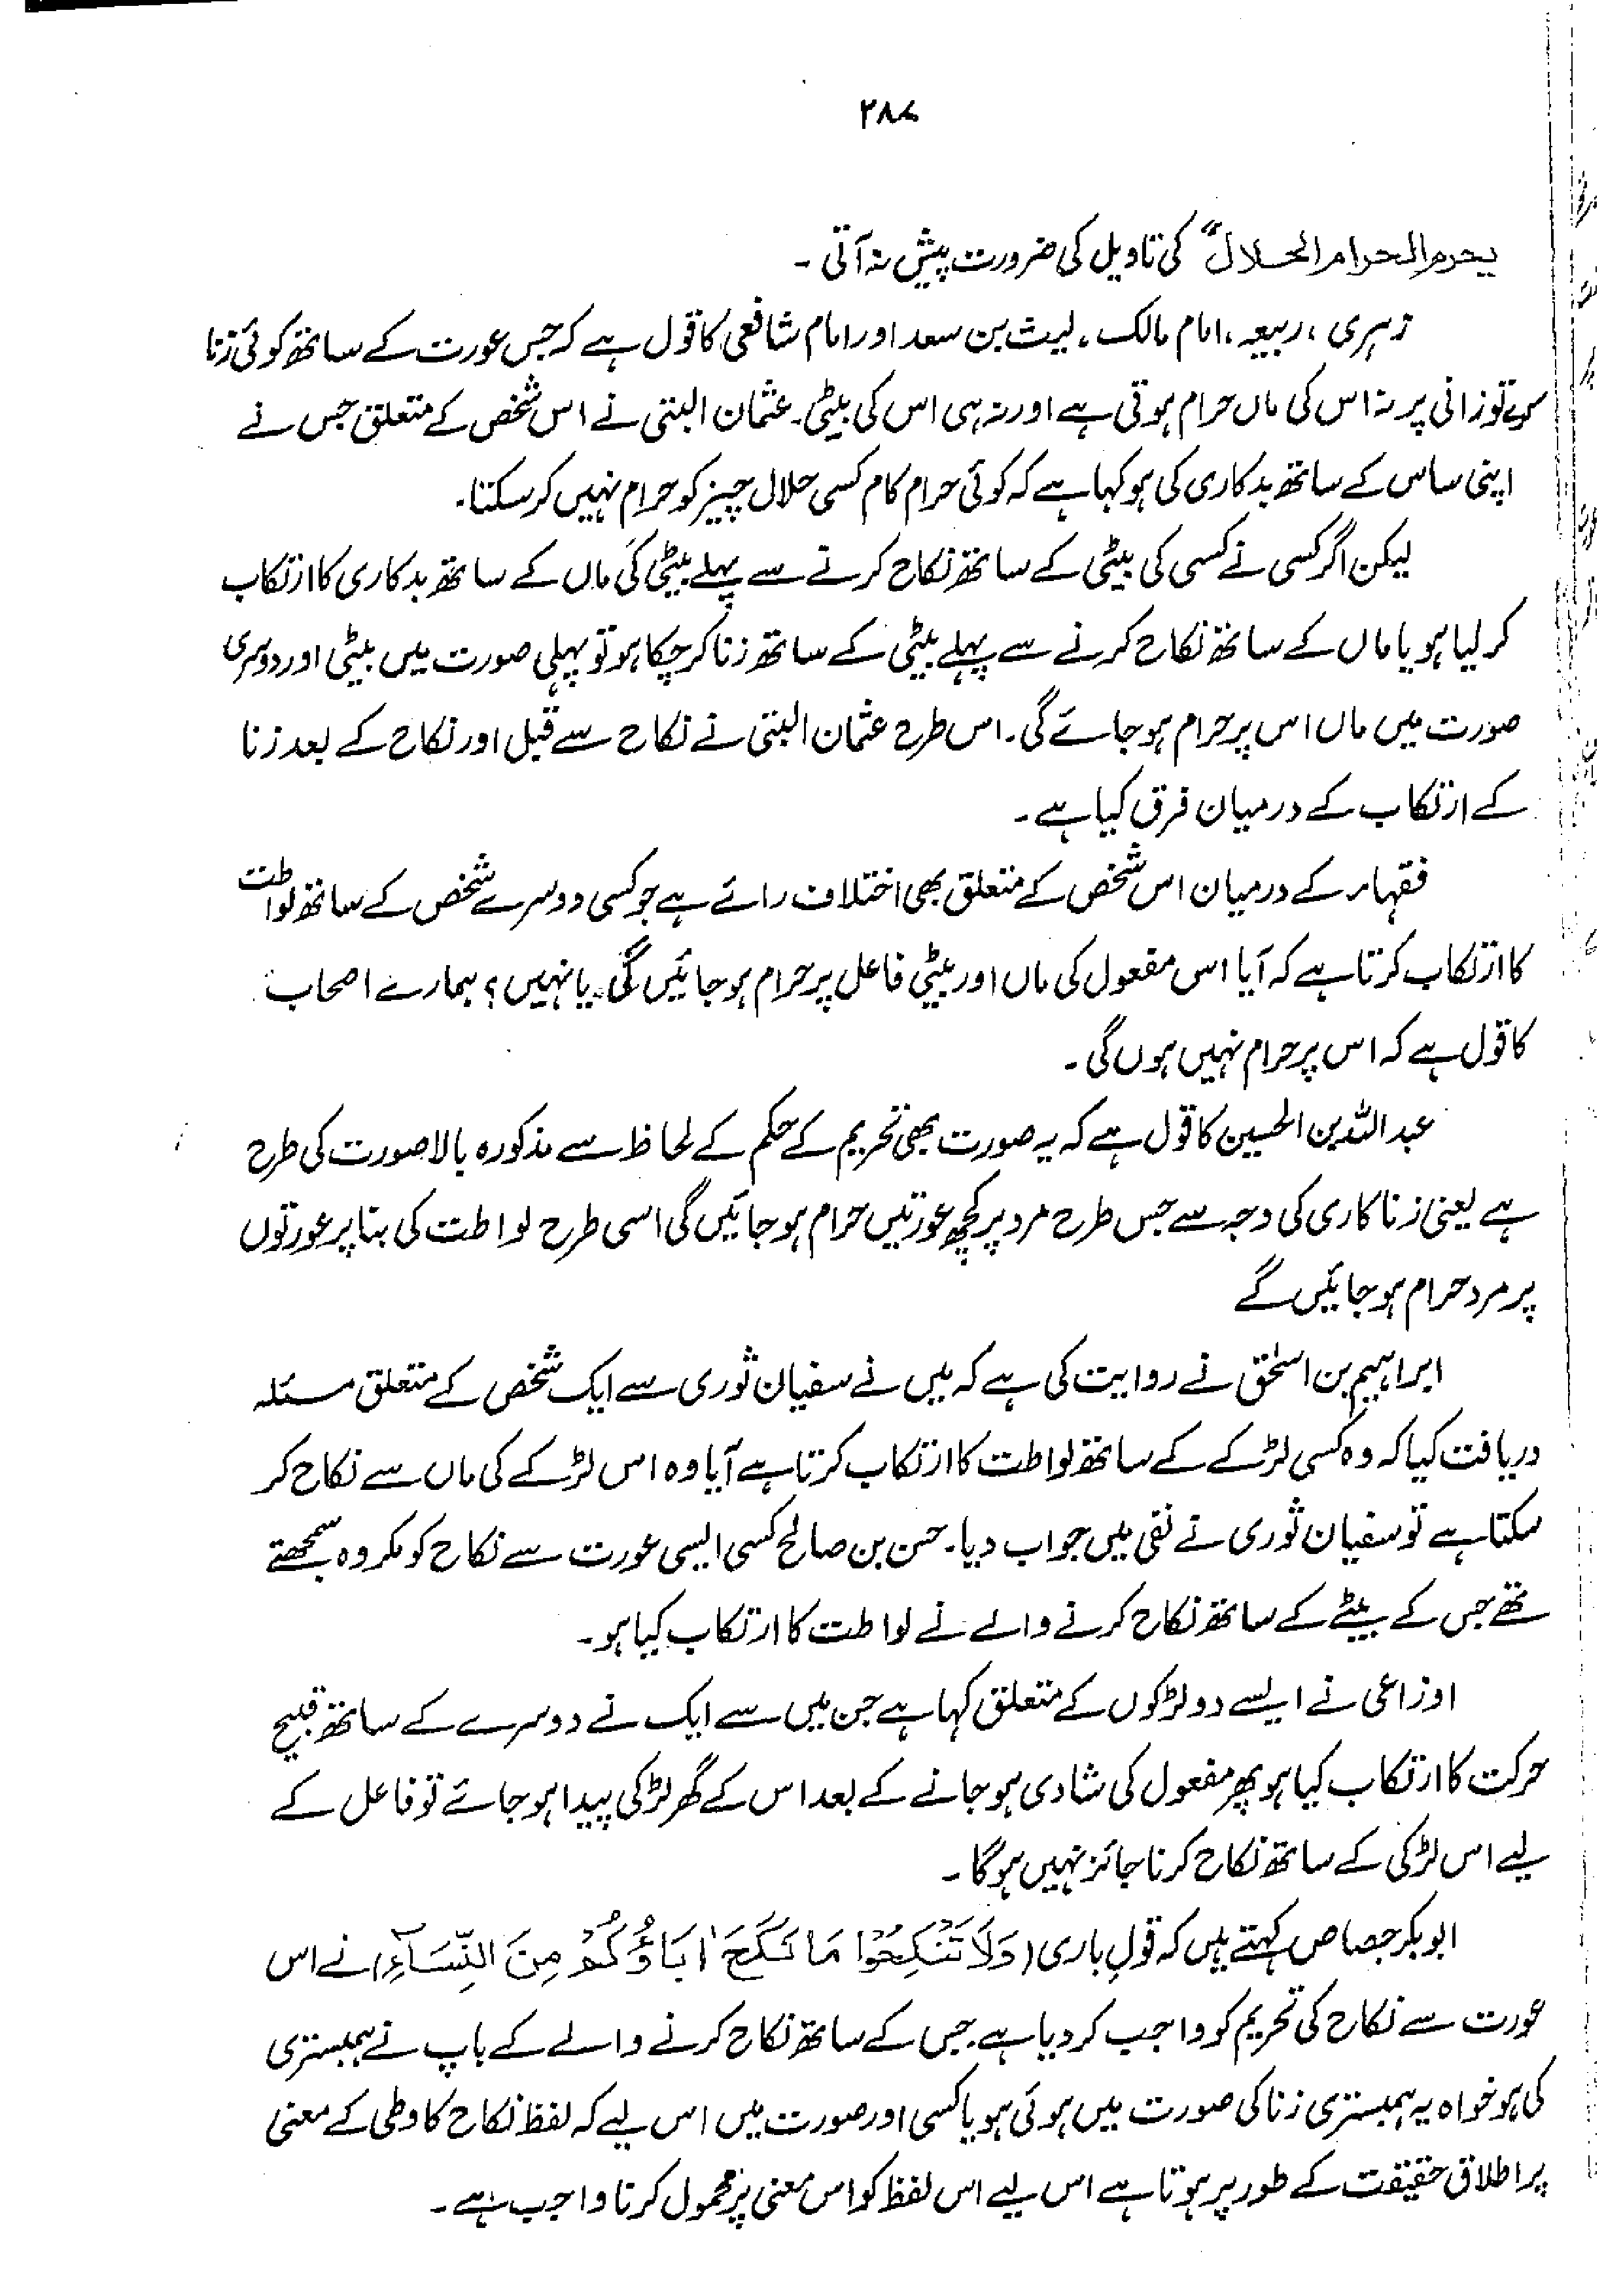 ۲۸۷
یحرم الحرام الحلال" کی تاویل کی ضرورت پیش نہ آتی ۔
زہری ، ربیعہ ، امام مالک ، لیث بن سعد اور امام شافعی کا قول ہے کہ جس عورت کے ساتھ کوئی زنا
کرے تو زانی پر نہ اس کی ماں حرام ہوتی ہے اور نہ ہی اس کی بیٹی ۔ عثمان البتی نے اس شخص کے متعلق جس نے
اپنی ساس کے ساتھ بدکاری کی ہو کہا ہے کہ کوئی حرام کام کسی حلال چیز کو حرام نہیں کر سکتا ۔
لیکن اگر کسی نے کسی کی بیٹی کے ساتھ نکاح کرنے سے پہلے بیٹی کی ماں کے ساتھ بدکاری کا ارتکاب
کر لیا ہو یا ماں کے ساتھ نکاح کرنے سے پہلے بیٹی کے ساتھ زنا کر چکا ہو تو پہلی صورت میں بیٹی اور دوسری
صورت میں ماں اس پر حرام ہو جائے گی ۔ اس طرح عثمان البتی نے نکاح سے قبل اور نکاح کے بعد زنا
کے ارتکاب کے درمیان فرق کیا ہے ۔
فقہاء کے درمیان اس شخص کے متعلق بھی اختلاف رائے ہے جو کسی دوسرے شخص کے ساتھ لواطت
کا ارتکاب کرتا ہے کہ آیا اس مفعول کی ماں اور بیٹی فاعل پر حرام ہو جائیں گی یا نہیں ؟ ہمارے اصحاب
کا قول ہے کہ اس پر حرام نہیں ہوں گی ۔
عبداللہ بن الحسین کا قول ہے کہ یہ صورت بھی تحریم کے حکم کے لحاظ سے مذکورہ بالا صورت کی طرح
ہے یعنی زناکاری کی وجہ سے جس طرح مرد پر کچھ عورتیں حرام ہو جائیں گی اسی طرح لواطت کی بنا پر عورتوں
پر مرد حرام ہو جائیں گے
ابراہیم بن اسحٰق نے روایت کی ہے کہ میں نے سفیان ثوری سے ایک شخص کے متعلق مسئلہ
دریافت کیا کہ وہ کسی لڑکے کے ساتھ لواطت کا ارتکاب کرتا ہے آیا وہ اس لڑکے کی ماں سے نکاح کر
سکتا ہے تو سفیان ثوری نے نفی میں جواب دیا ۔ حسن بن صالح کسی ایسی عورت سے نکاح کو مکروہ سمجھتے
تھے جس کے بیٹے کے ساتھ نکاح کرنے والے نے لواطت کا ارتکاب کیا ہو ۔
اوزاعی نے ایسے دو لڑکوں کے متعلق کہا ہے جن میں سے ایک نے دوسرے کے ساتھ قبیح
حرکت کا ارتکاب کیا ہو پھر مفعول کی شادی ہو جانے کے بعد اس کے گھر لڑکی پیدا ہو جائے تو فاعل کے
لیے اس لڑکی کے ساتھ نکاح کرنا جائز نہیں ہوگا ۔
ابوبکر جصاص کہتے ہیں کہ قول باری (وَلَا تَنْكِحُوْا مَا نَكَحَ اٰبَاؤُكُمْ مِنَ النِّسَآءِ) نے اس
عورت سے نکاح کی تحریم کو واجب کر دیا ہے جس کے ساتھ نکاح کرنے والے کے باپ نے ہمبستری
کی ہو خواہ یہ ہمبستری زنا کی صورت میں ہوئی ہو یا کسی اور صورت میں اس لیے کہ لفظ نکاح کا وطی کے معنی
پر اطلاق حقیقت کے طور پر ہوتا ہے اس لیے اس لفظ کو اس معنی پر محمول کرنا واجب ہے ۔